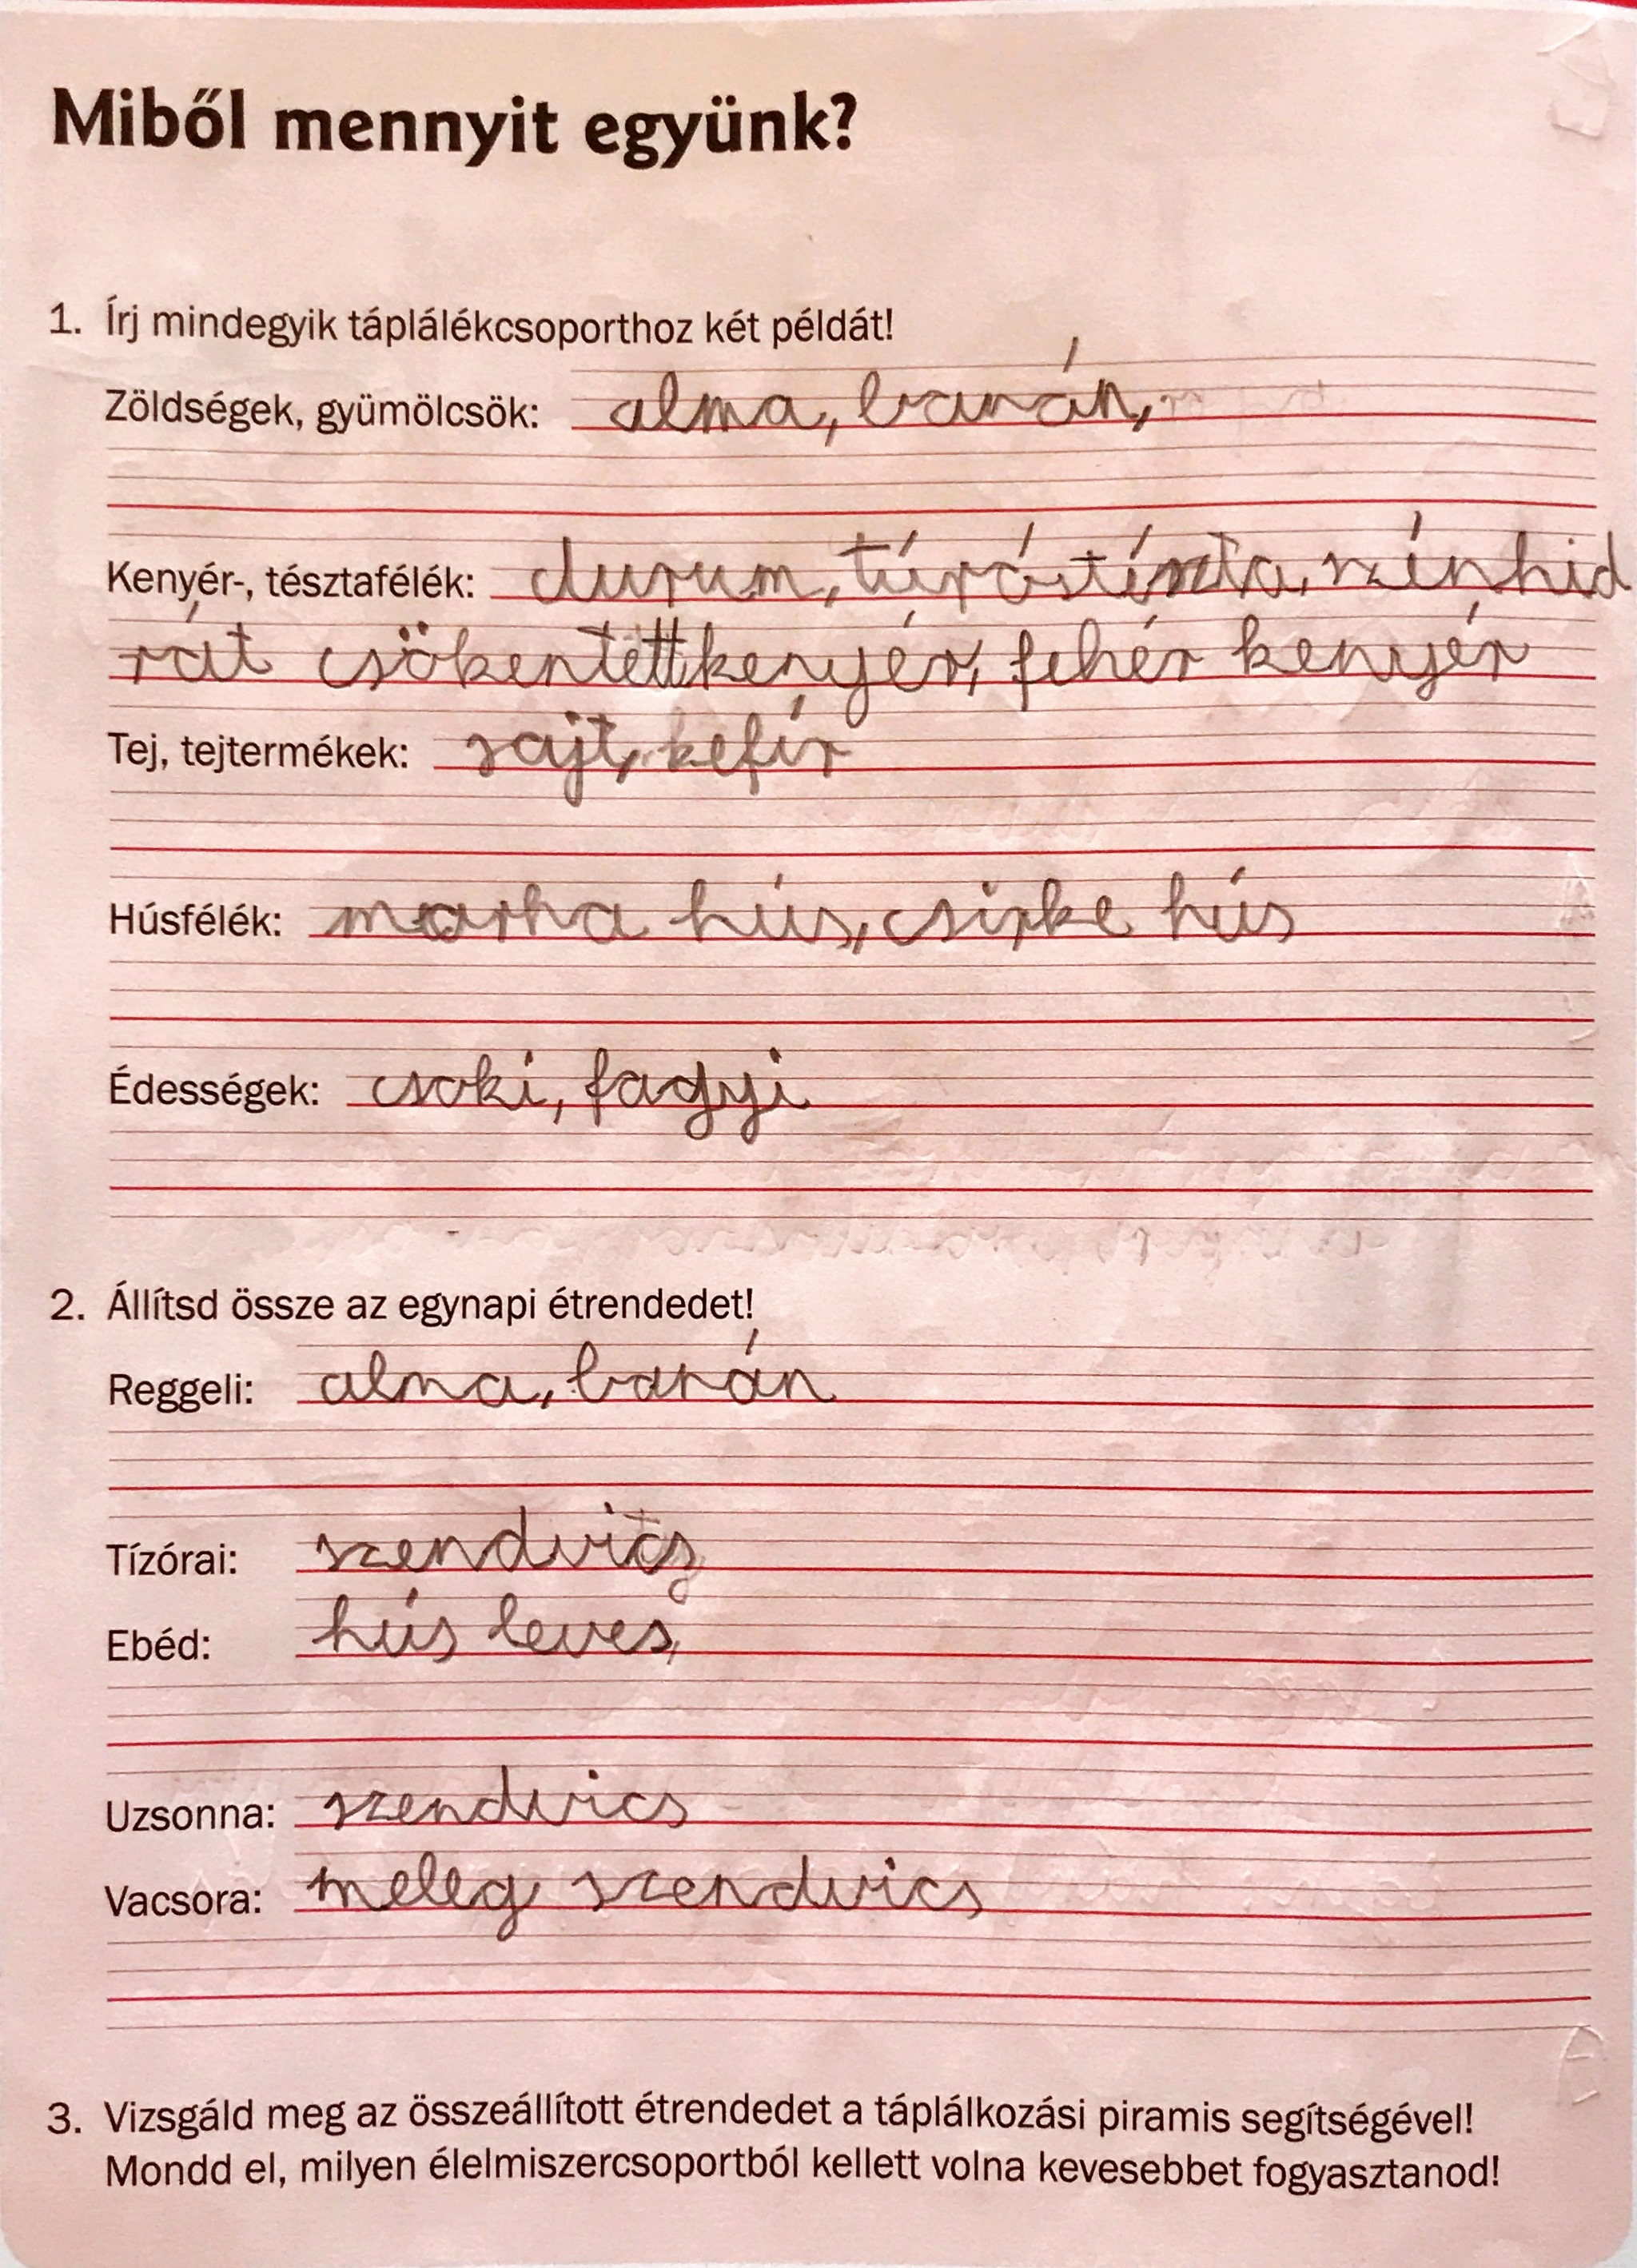 Miből mennyit együnk?
1. Írj mindegyik táplálékcsoporthoz két példát!
Zöldségek, gyümölcsök: alma, banán,
Kenyér-, tésztafélék: durum, túróstészta, szénhid
rát csökentettkenyér, fehér kenyér
Tej, tejtermékek: sajt, kefír
Húsfélék: marha hús, csirke hús
Édességek: csoki, fagyi
2. Állítsd össze az egynapi étrendedet!
Reggeli: alma, banán
Tízórai: szendvics
Ebéd: hús leves,
Uzsonna: szendvics
Vacsora: meleg szendvics
3. Vizsgáld meg az összeállított étrendedet a táplálkozási piramis segítségével!
Mondd el, milyen élelmiszercsoportból kellett volna kevesebbet fogyasztanod!